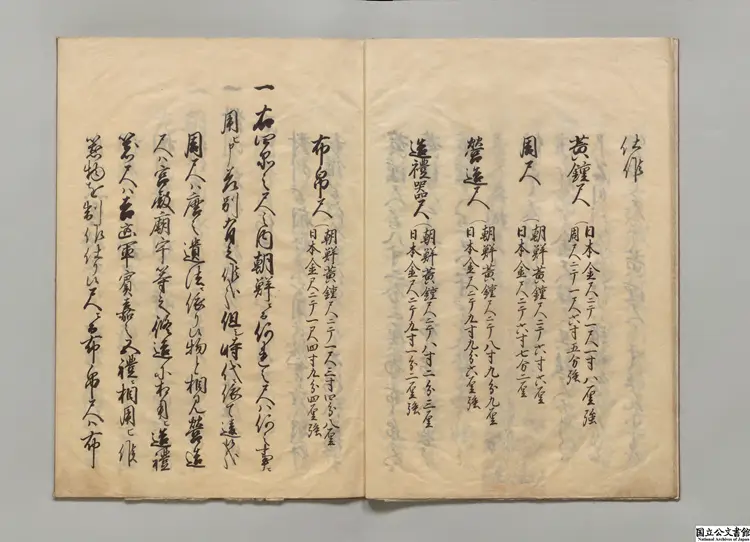 仕作
黄鐘尺
日本金尺ニテ一尺一寸八厘強
周尺ニテ一尺六寸五分強
周尺
朝鮮黄鐘尺ニテ六寸六厘
日本金尺ニテ六寸七分二厘
營造尺
朝鮮黄鐘尺ニテ八寸九分九厘
日本金尺ニテ九寸九分六厘強
造禮器尺
朝鮮黄鐘尺ニテ八寸二分三厘
日本金尺ニテ九寸一分二厘強
布帛尺
朝鮮黄鐘尺ニテ一尺三寸四分八厘
日本金尺ニテ一尺四寸九分四厘強
一右 之尺之内朝鮮ニ而何連之尺ハ何之事ニ
用ヒ 差別有之 但時代依て違
周尺ハ 之遺法依り候物と相見營造
尺ハ宮殿廟宇等之修造ニ相用造禮
器尺ハ吉凶軍賓嘉之五禮ニ相用ヒ作
器物を制作仕り候尺ニ而布帛尺ハ布
国立公文書館
National Archives of Japan